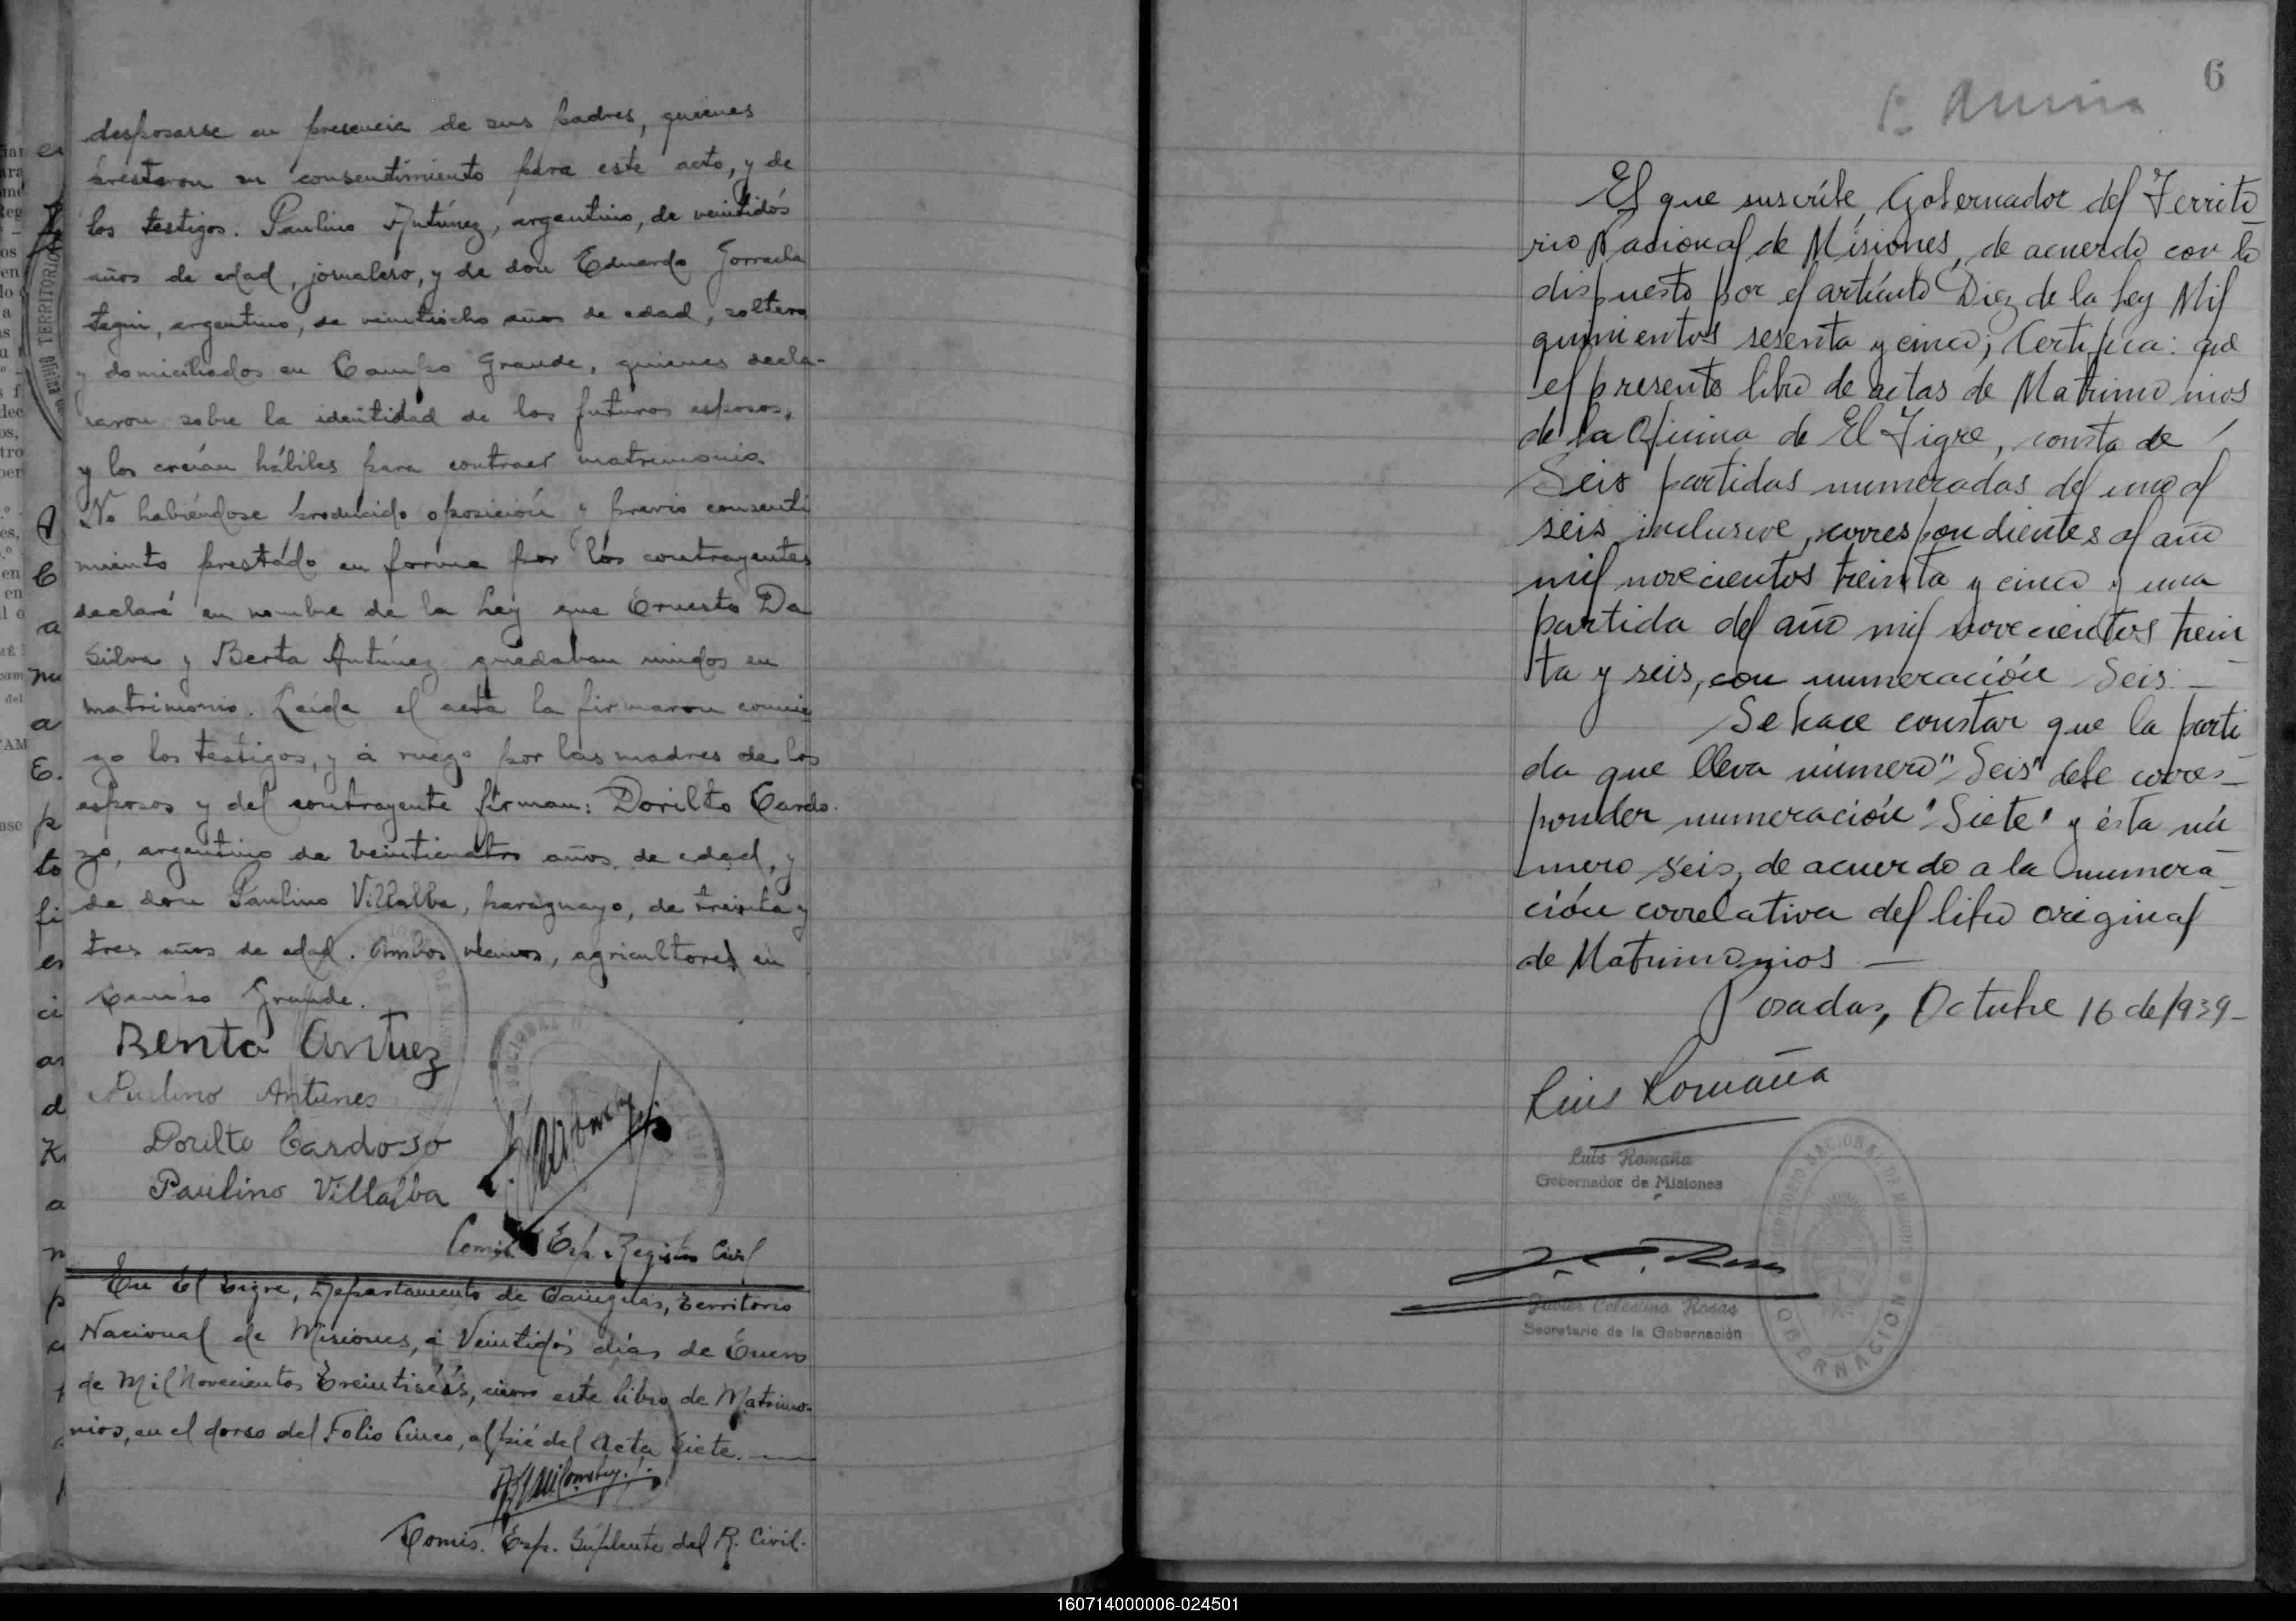 desposarse en presencia de sus padres, quienes
prestaron su consentimiento para este acto, y de
los testigos: Paulino Antúnez, argentino, de veintidós
años de edad, jornalero, y de don Eduardo Gorracha
tegui, argentino, de veintiocho años de edad, soltero
y domiciliados en Campo Grande, quienes decla-
raron sobre la identidad de los futuros esposos,
y los creían hábiles para contraer matrimonio.
No habiéndose producido oposición y previo consenti
miento prestado en forma por los contrayentes
declaré en nombre de la Ley que Ernesto Da
Silva y Berta Antúnez quedaban unidos en
matrimonio. Leída el acta la firmaron conmi
go los testigos, y á ruego por las madres de los
esposos y del contrayente firman: Dorilto Cardo-
zo, argentino de veinticuatro años, de edad, y
de don Paulino Villalba, paraguayo, de treinta y
tres años de edad. Ambos vecinos, agricultores en
Campo Grande.
Renta Antuez
Paulino Antunes
Dorilto Cardoso
Paulino Villalba
Comis. Esp. Registro Civil
En El Tigre, Departamento de Cainguas, Territorio
Nacional de Misiones, á Veintidós días de Enero
de Mil Novecientos Treintiséis, cierro este libro de Matrimo-
nios, en el dorso del Folio Cinco, al pié del Acta Siete.
Comis. Esp. Suplente del R. Civil.
6
El que suscribe, Gobernador del Territo
rio Nacional de Misiones, de acuerdo con lo
dispuesto por el artículo Diez de la Ley Mil
quinientos sesenta y cinco; Certifica: que
el presente libro de actas de Matrimonios
de la Oficina de El Tigre, consta de
Seis partidas numeradas del uno al
seis inclusive, correspondientes al año
mil novecientos treinta y cinco y una
partida del año mil novecientos trein
ta y seis, con numeración Seis. —
Se hace constar que la parti
da que lleva número "Seis" debe corres-
ponder numeración "Siete" y ésta nú
mero seis, de acuerdo a la numera
ción correlativa del libro original
de Matrimonios —
Posadas, Octubre 16 de 1939-
Luis Romaña
Luis Romaña
Gobernador de Misiones
Javier Celestino Rosas
Secretario de la Gobernación
TERRITORIO NACIONAL DE MISIONES
GOBERNACION
160714000006-024501